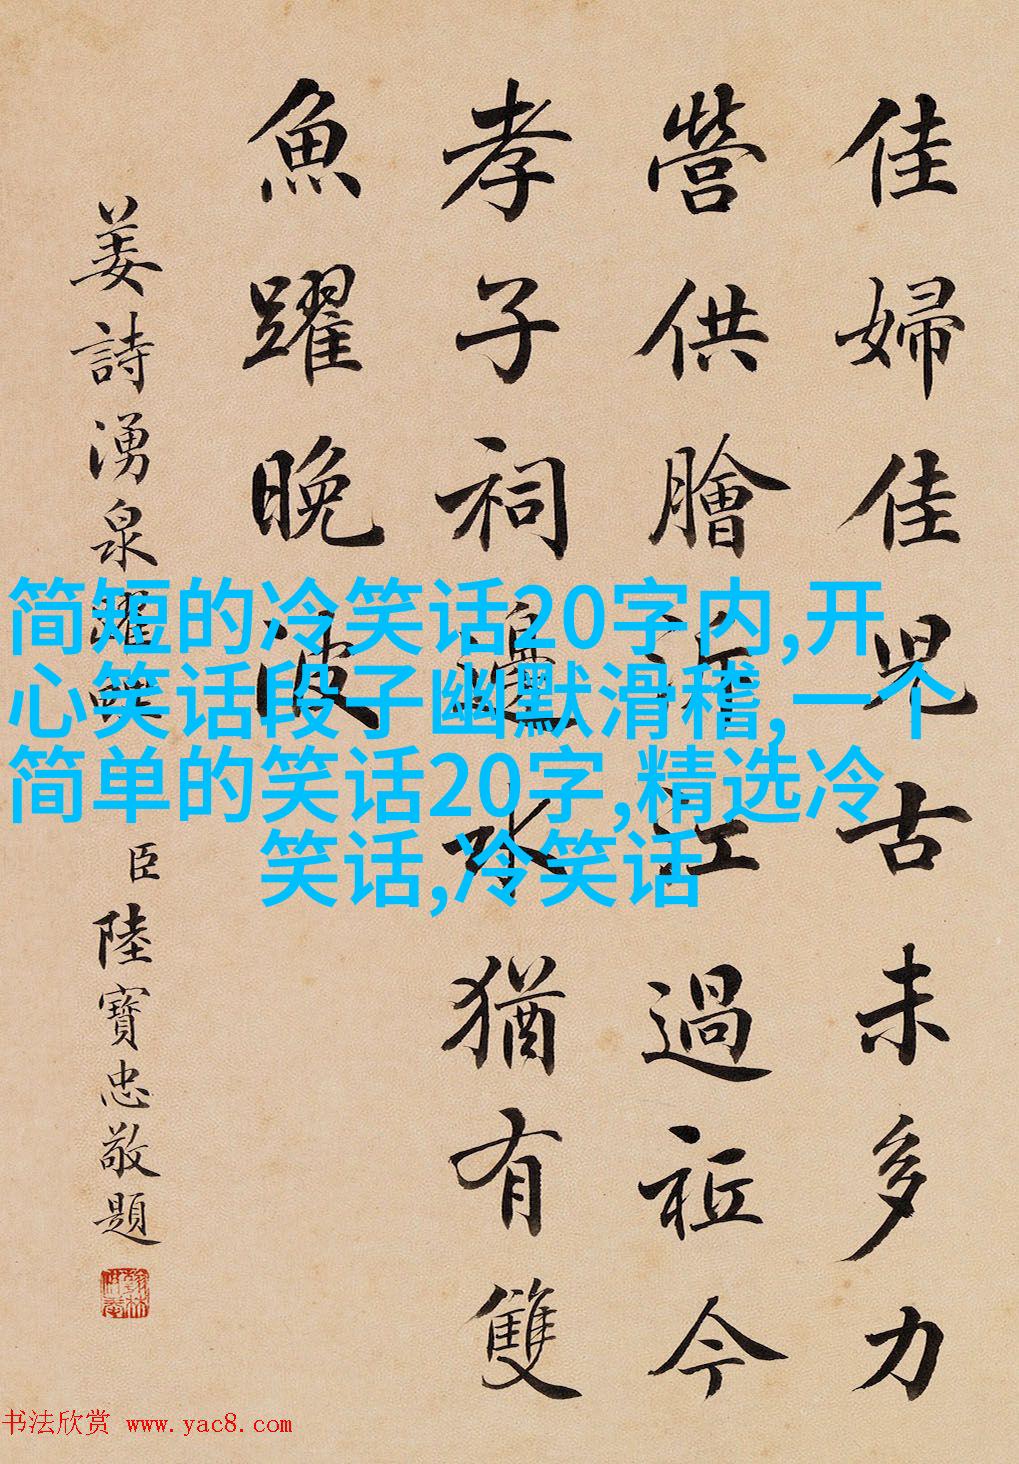 佳婦佳兒古未多力
營供膾泝江過祗今
孝子祠邊水猶有雙
魚躍晚波
姜詩湧泉躍鯉
臣陸寶忠敬題
简短的冷笑话20字内,开
心笑话段子幽默滑稽,一个
简单的笑话20字,精选冷
笑话,冷笑话
书法欣赏 www.yac8.com